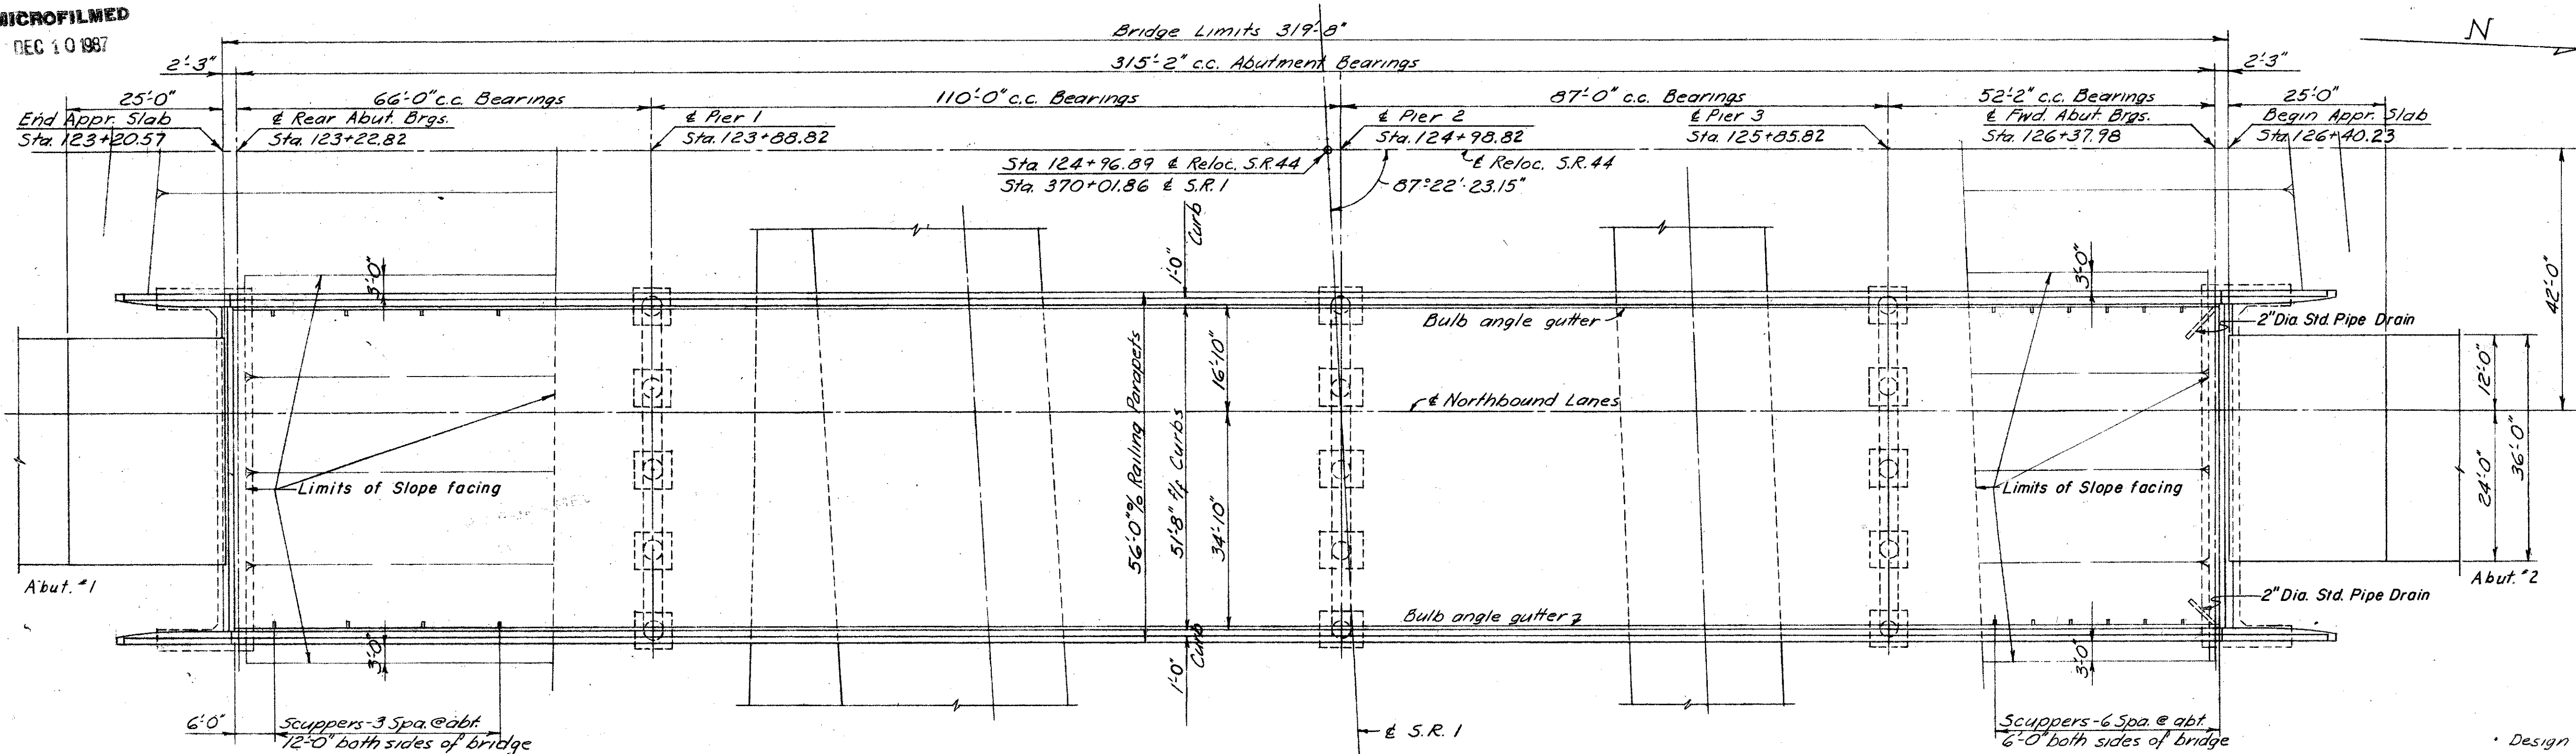 MICROFILMED
DEC 10 1987
Bridge Limits 319'-8"
N
2'-3"
315'-2" c.c. Abutment Bearings
2'-3"
25'-0"
66'-0" c.c. Bearings
110'-0" c.c. Bearings
87'-0" c.c. Bearings
52'-2" c.c. Bearings
25'-0"
End Appr. Slab
Sta. 123+20.57
℄ Rear Abut. Brgs.
Sta. 123+22.82
℄ Pier 1
Sta. 123+88.82
℄ Pier 2
Sta. 124+98.82
℄ Pier 3
Sta. 125+85.82
℄ Fwd. Abut. Brgs.
Sta. 126+37.98
Begin Appr. Slab
Sta. 126+40.23
Sta. 124+96.89 ℄ Reloc. S.R. 44
Sta. 370+01.86 ℄ S.R. 1
℄ Reloc. S.R. 44
87°22'-23.15"
1'-0"
Curb
3'-0"
3'-0"
42'-0"
Bulb angle gutter
2" Dia. Std. Pipe Drain
16'-10"
12'-0"
36'-0"
℄ Northbound Lanes
56'-0" o/o Railing Parapets
51'-8" f/f Curbs
34'-10"
24'-0"
Limits of Slope facing
Limits of Slope facing
Abut. #1
Abut. #2
2" Dia. Std. Pipe Drain
Bulb angle gutter
3'-0"
1'-0"
Curb
3'-0"
6'-0"
Scuppers-3 Spa. @ abt.
12'-0" both sides of bridge
℄ S.R. 1
Scuppers-6 Spa. @ abt.
6'-0" both sides of bridge
Design